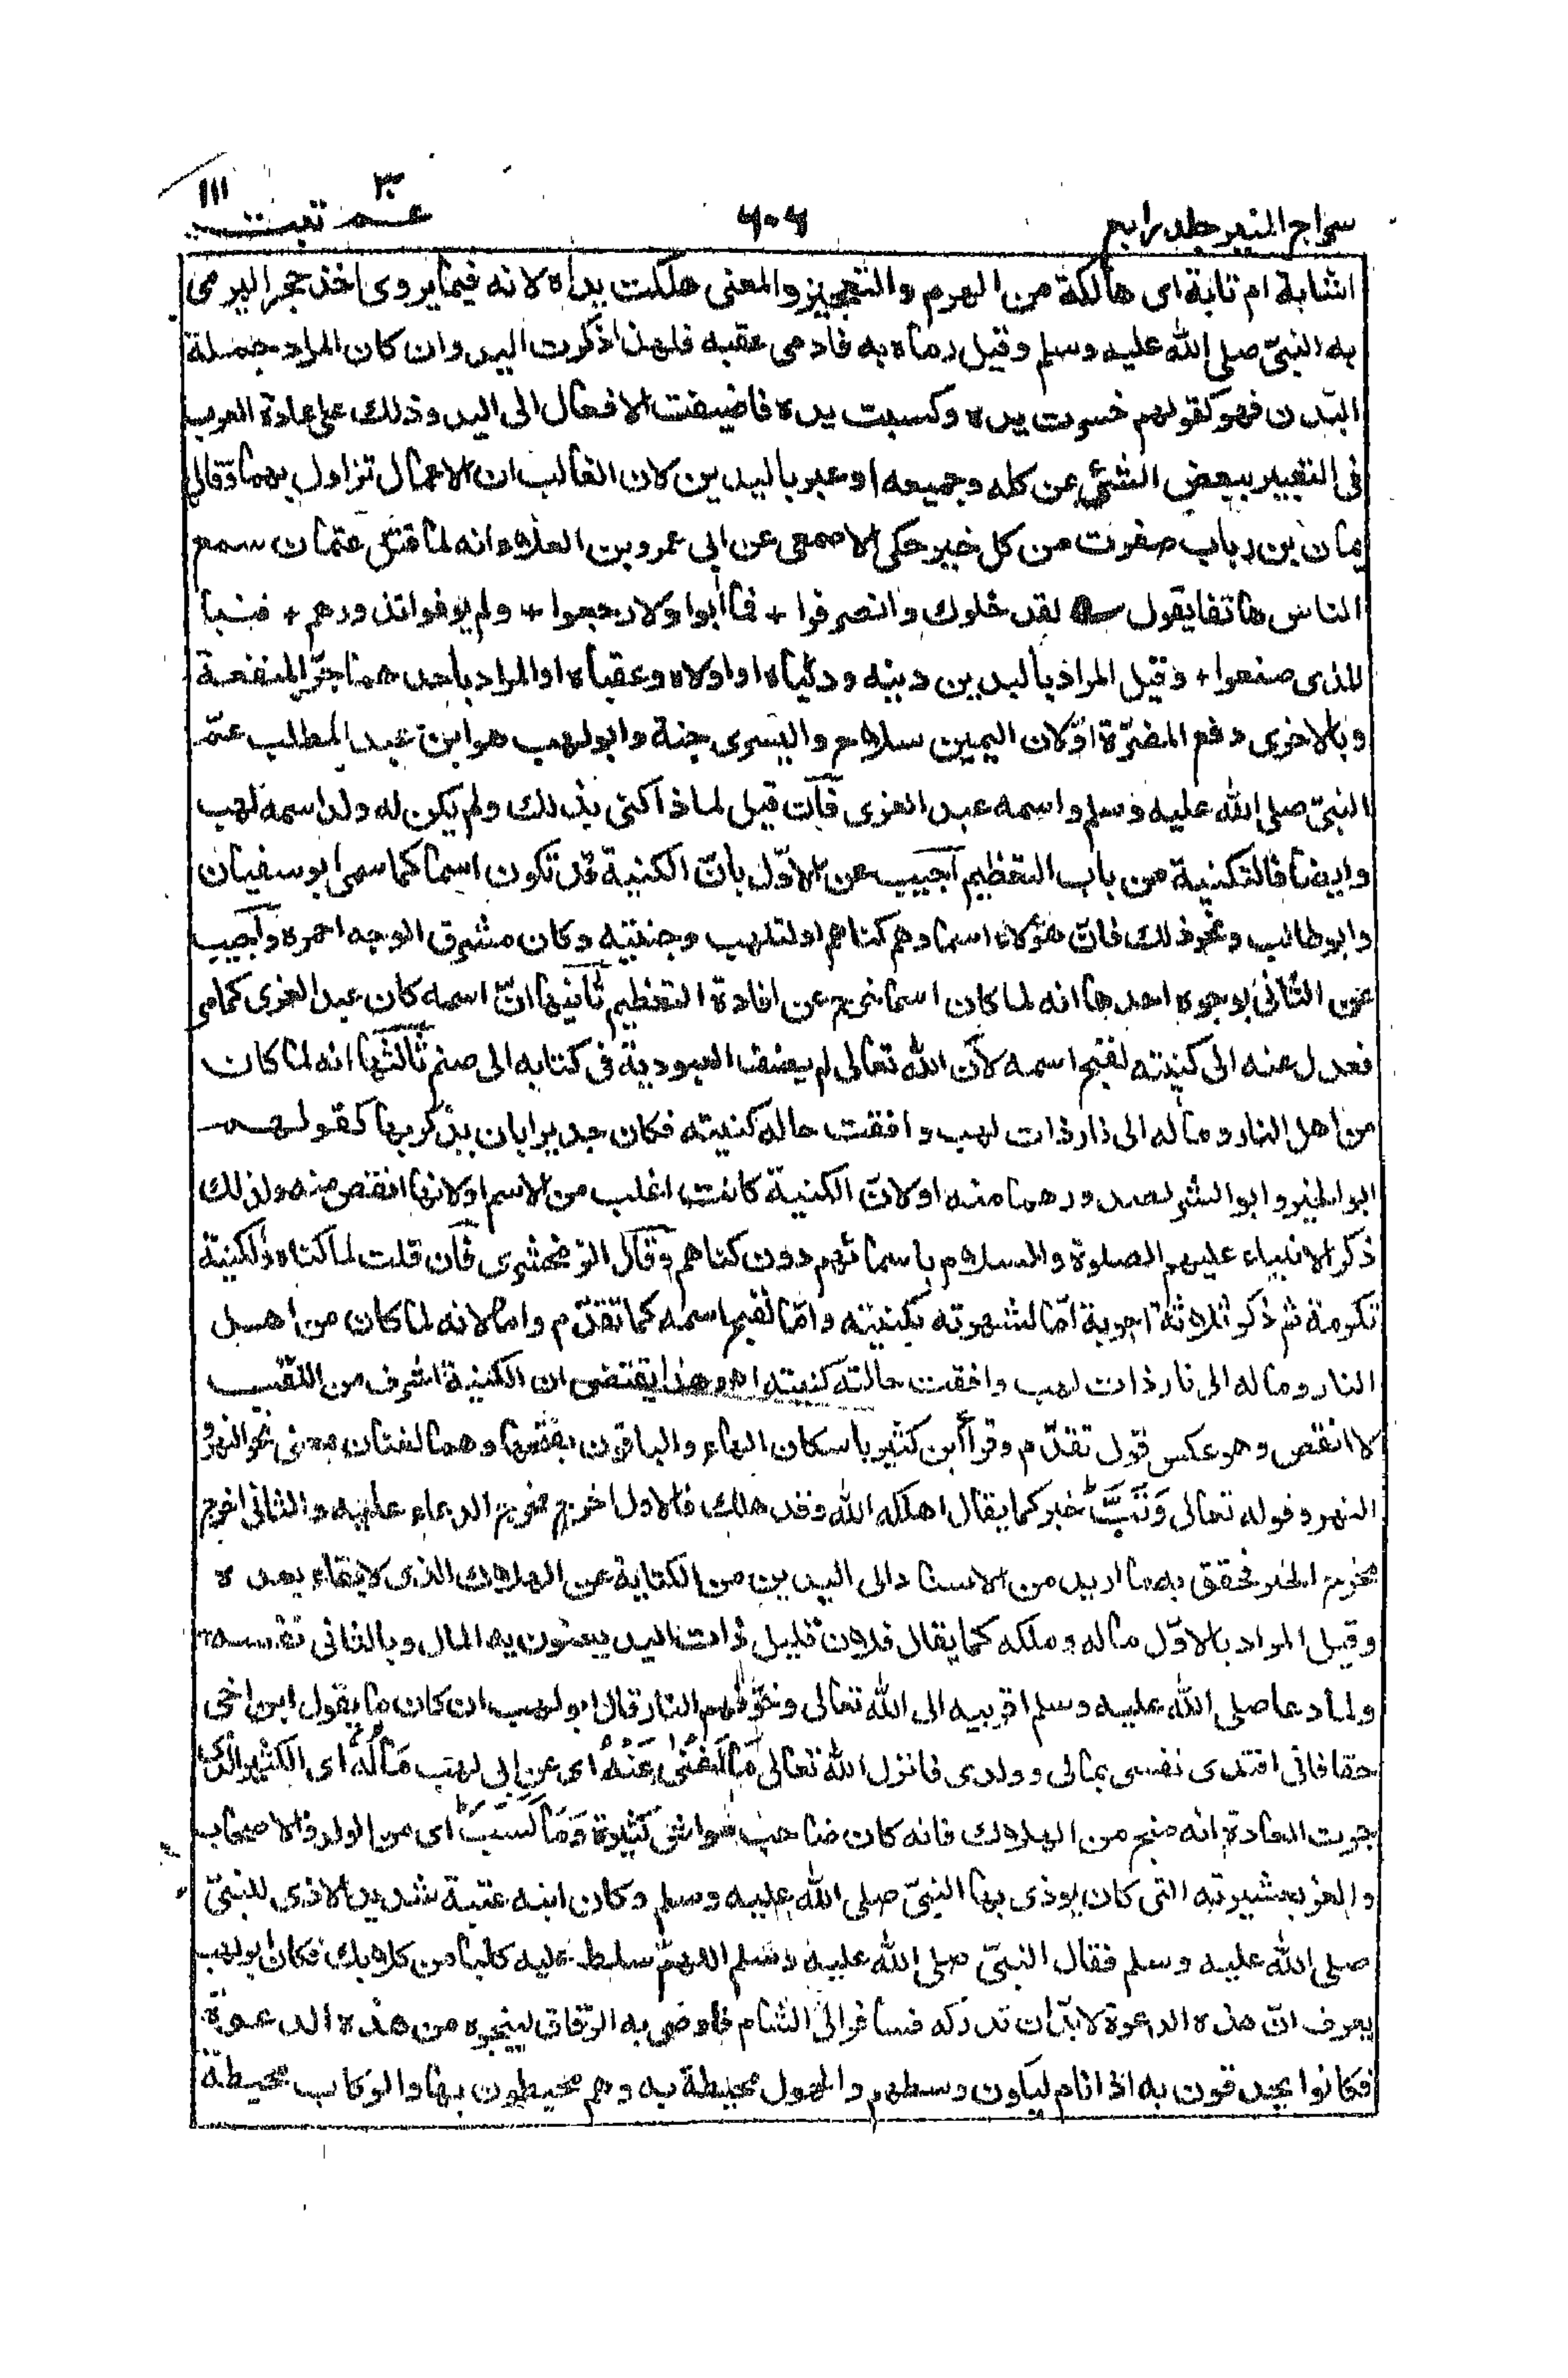 سراج المنير جلد رابع
۶۰۶
عـم تبت
٣٠
١١١
اشابة ام تابة اى هالكة من الهرم والتعجيز والمعنى هلكت يداه لانه فيما يروى اخذ حجرا ليرمى
به النبىّ صلى الله عليه وسلم وقيل رماه به فادمى عقبه فلهذا ذكرت اليد وان كان المراد جملة
البدن فهو كقولهم خسرت يده وكسبت يده فاضيفت الافعال الى اليد وذلك على عادة العرب
فى التعبير ببعض الشئ عن كله وجميعه او عبر باليدين لان الغالب ان الاعمال تزاول بهما وقال
يمان بن رباب صفرت من كل خير حكى الاصمعى عن ابى عمرو بن العلاء انه لما قتل عثمان سمع
الناس هاتفا يقول لقد خلوك وانصرفوا + فما أبوا ولا رجعوا + ولم يوفوا نذورهم + فتبا
للذى صنعوا + وقيل المراد باليدين دينه ودنياه او اولاه وعقباه او المراد باحدهما جرّ المنفعة
وبالاخرى دفع المضرّة او لان اليمين سلاح واليسرى جنة وابو لهب هو ابن عبد المطلب عمّ
النبىّ صلى الله عليه وسلم واسمه عبد العزى فان قيل لماذا كنى بذلك ولم يكن له ولد اسمه لهب
وايضا فالتكنية من باب التعظيم أجيب عن الاوّل بانّ الكنية قد تكون اسما كما سمى ابو سفيان
وابو طالب ونحو ذلك فانّ هؤلاء اسماؤهم كناهم او لتلهب وجنتيه وكان مشرق الوجه احمره وأجيب
عن الثانى بوجوه احدها انه لما كان اسما خرج عن افادة التعظيم ثانيها انّ اسمه كان عبد العزى كما مر
فعدل عنه الى كنيته لقبح اسمه لانّ الله تعالى لم يضف العبودية فى كتابه الى صنم ثالثها انه لما كان
من اهل النار وماله الى نار ذات لهب وافقت حاله كنيته فكان جديرا بان يذكر بها كقولهم
ابو الخير وابو الشر لصدورهما منه او لانّ الكنية كانت اغلب من الاسم او لانها انقص منه ولذلك
ذكر الانبياء عليهم الصلوة والسلام باسمائهم دون كناهم وقال الزمخشرى فان قلت لما كناه والكنية
تكرمة ثم ذكر ثلاثة اجوبة امّا لشهرته بكنيته وامّا لقبح اسمه كما تقدّم واما لانه لما كان من اهل
النار وماله الى نار ذات لهب وافقت حالته كنيته اهـ وهذا يقتضى ان الكنية اشرف من اللقب
لا انقص وهو عكس قول تقدّم وقرأ ابن كثير باسكان الهاء والباقون بفتحها وهما لغتان بمعنى نحو النهر و
النهر وقوله تعالى وَتَبَّ خبر كما يقال اهلكه الله وقد هلك فالاول اخرج مخرج الدعاء عليه والثانى اخرج
مخرج الخبر فحقق به ما اريد من الاسناد الى اليدين من الكناية عن الهلاك الذى لا بقاء بعده
وقيل المراد بالاوّل ماله وملكه كما يقال فلان قليل ذات اليد يعنون به المال وبالثانى نفسه
ولما دعا صلى الله عليه وسلم اقربيه الى الله تعالى وخوّفهم النار قال ابو لهب ان كان ما يقول ابن اخى
حقا فانى افتدى نفسى بمالى وولدى فانزل الله تعالى مَا أَغْنَىٰ عَنْهُ اى عن ابى لهب مَالُهُ اى الكثير الذى
جرت العادة انه منج من الهلاك فانه كان صاحب مواش كثيرة وَمَا كَسَبَ اى من الولد والاصحاب
والعز بعشيرته التى كان يوذى بها النبىّ صلى الله عليه وسلم وكان ابنه عتبة شديد الاذى للنبىّ
صلى الله عليه وسلم فقال النبىّ صلى الله عليه وسلم اللهمّ سلط عليه كلبا من كلابك فكان ابو لهب
يعرف انّ هذه الدعوة لا بدّ ان تدركه فسافر الى الشام فاوصى به الرفاق لينجوه من هذه الدعوة
فكانوا يحدقون به اذا نام ليكون وسطهم والحمول محيطة به وهم محيطون بها والركاب محيطة